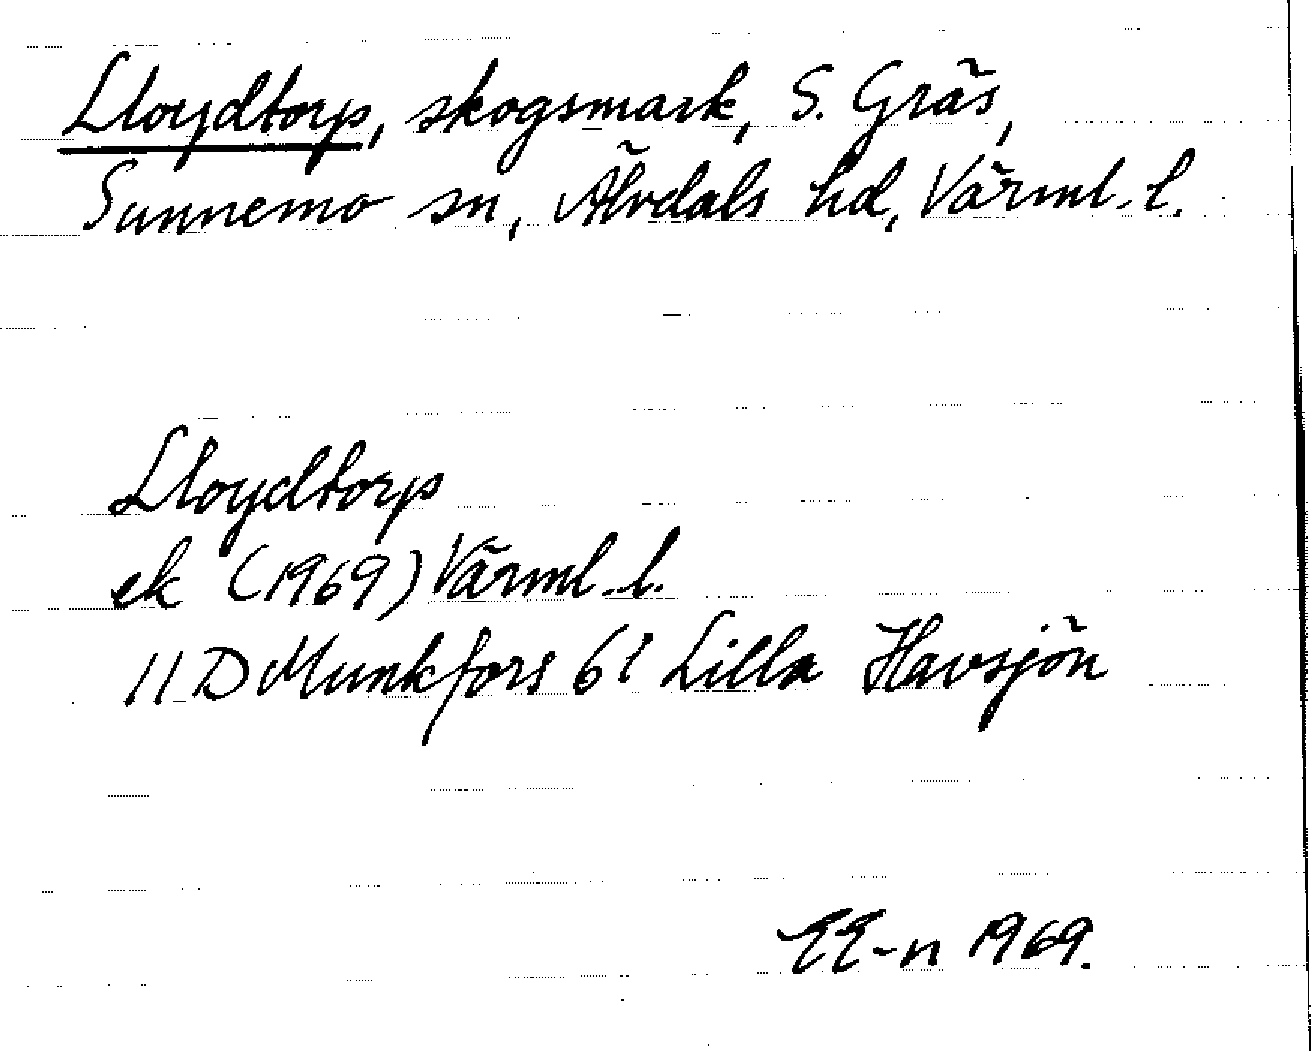 Lloydtorp, skogsmark, S. Gräs,
Sunnemo sn, Älvdals hd, Värml. l.
Lloydtorp
ek (1969) Värml. l.
11 D Munkfors 6i Lilla Havsjön
EE-n 1969.